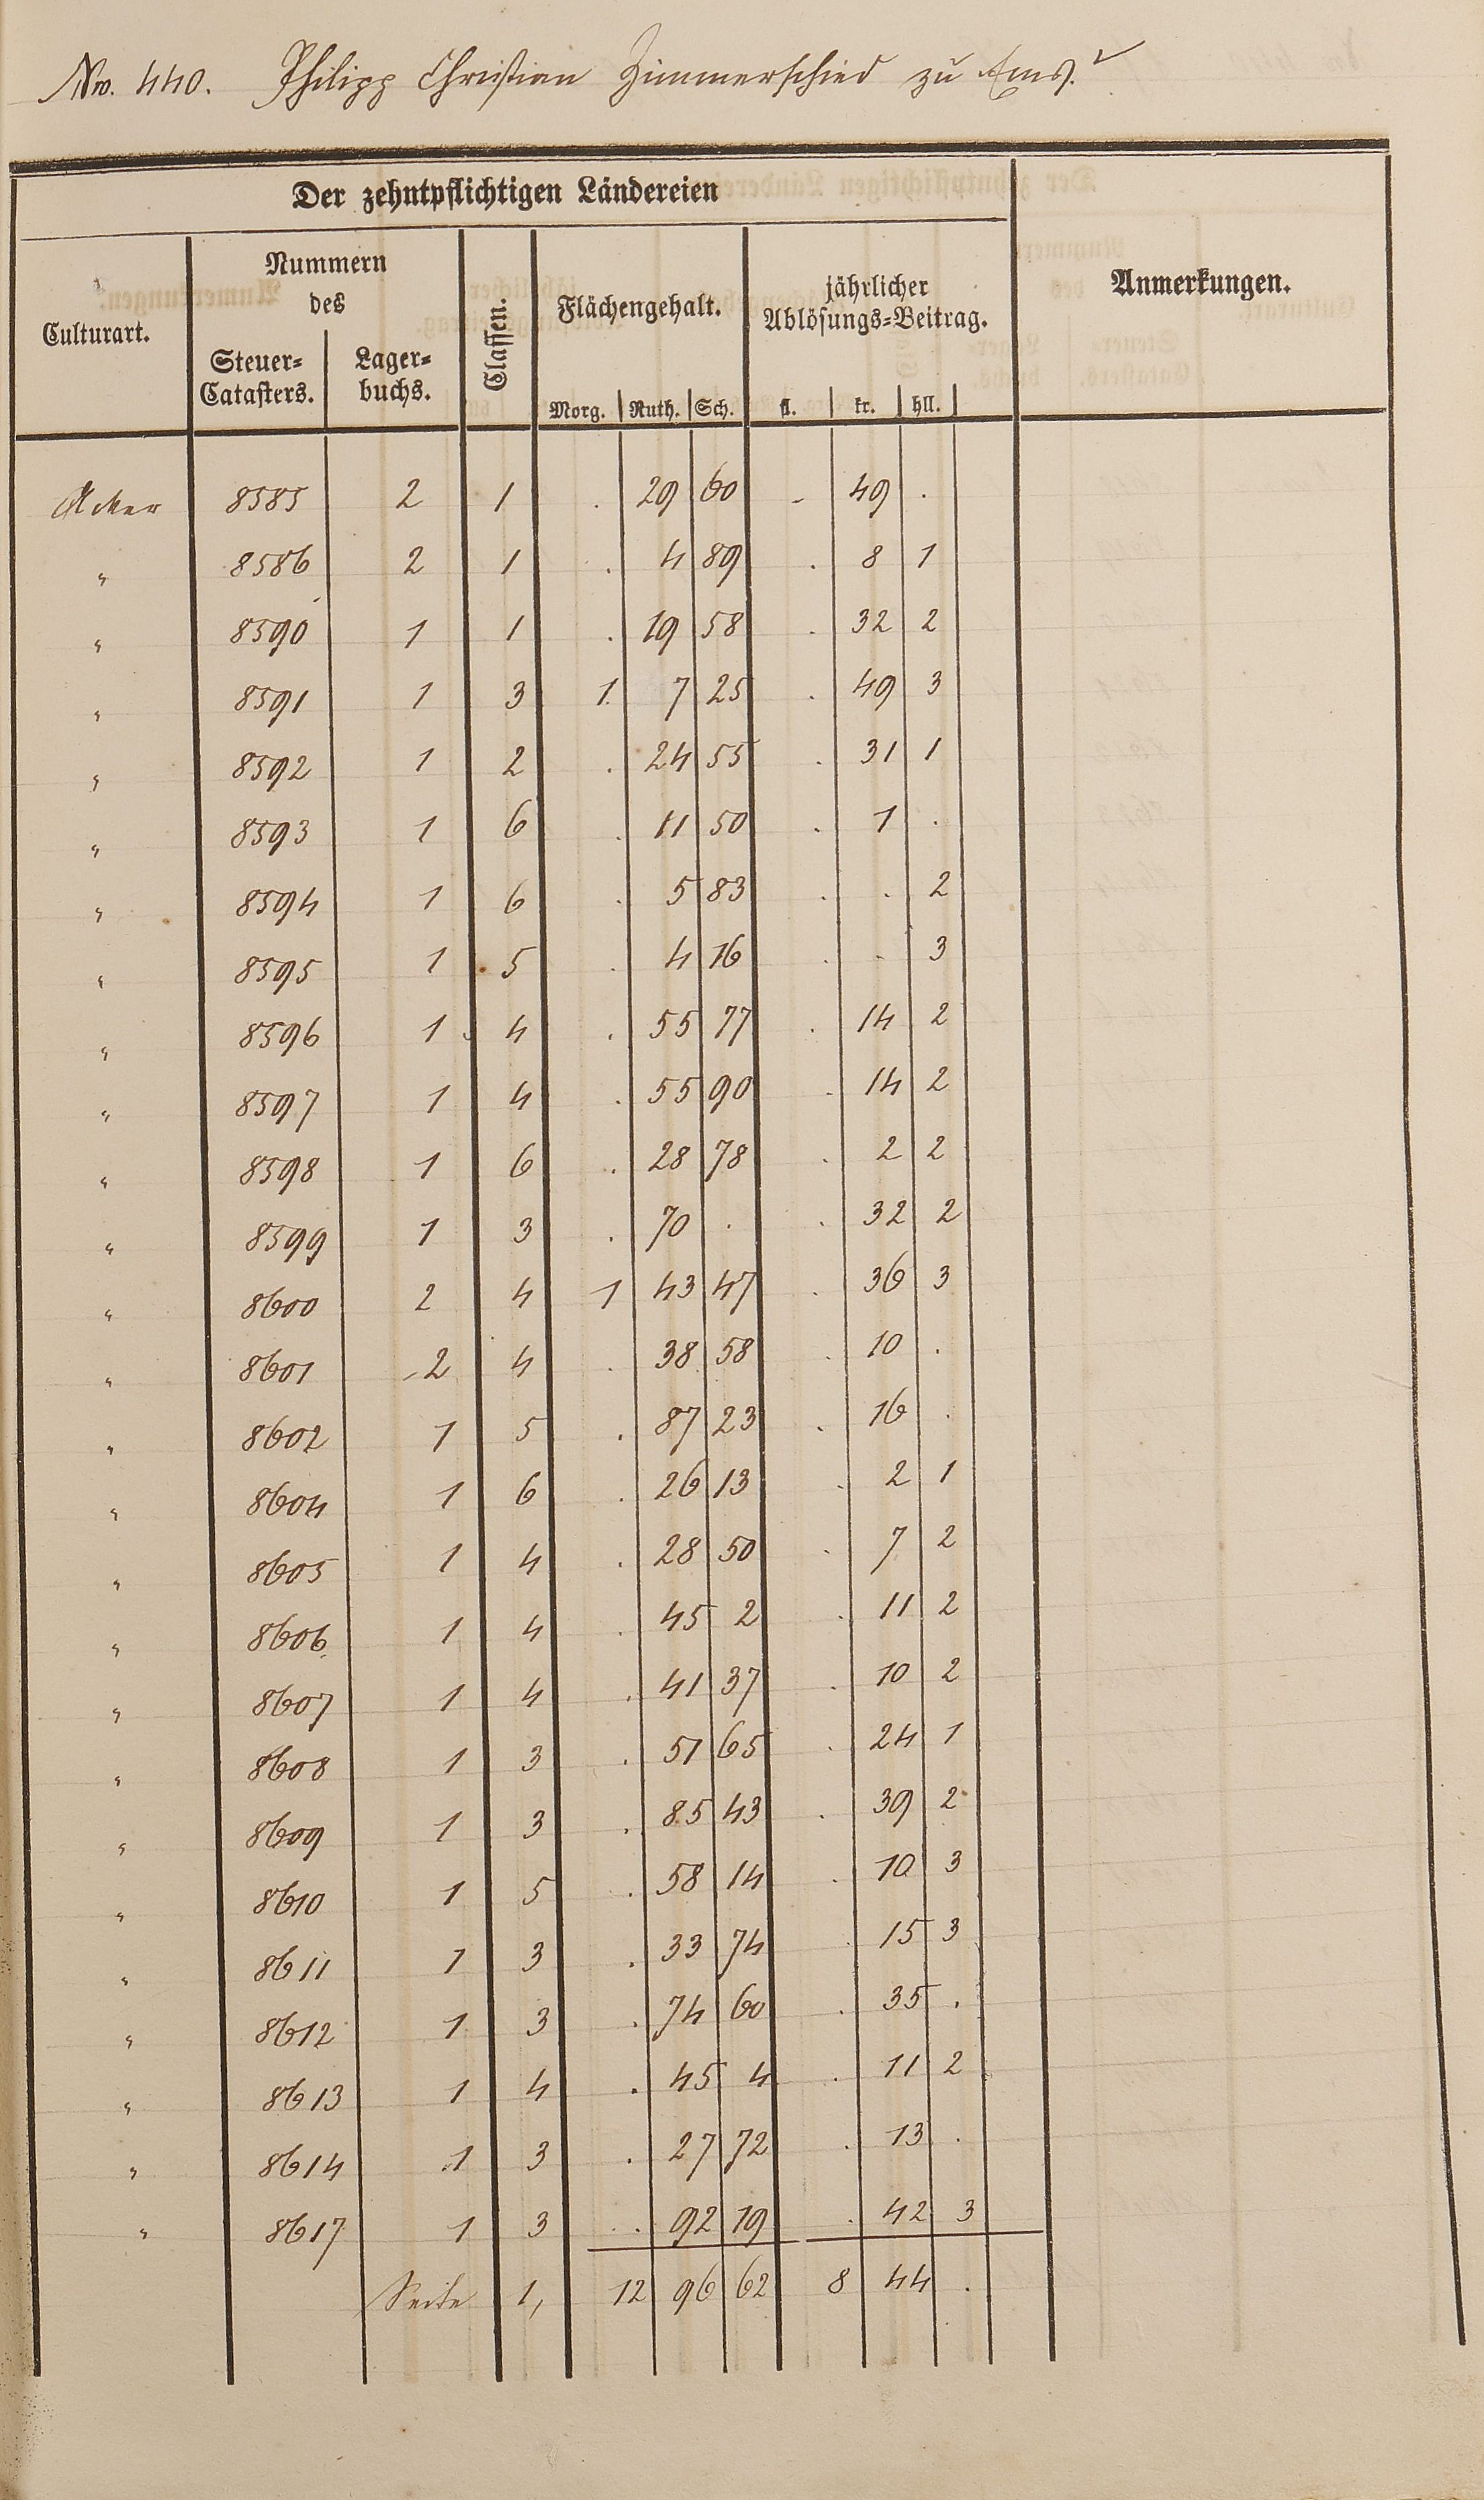 Nro. 440. Philipp Christian Zimmerschied zu Ems.
Der zehntpflichtigen Ländereien
Culturart. Nummern des Steuer-Catasters. Lagerbuchs. Classen. Flächengehalt. Morg. Ruth. Sch. jährlicher Ablösungs-Beitrag. fl. kr. hll. Anmerkungen.
Acker 8585 2 1 . 29 60 - 49 .
" 8586 2 1 . 4 89 . 8 1
" 8590 1 1 . 19 58 . 32 2
" 8591 1 3 1. 7 25 . 49 3
" 8592 1 2 . 24 55 . 31 1
" 8593 1 6 . 11 50 . 1 .
" 8594 1 6 . 5 83 . . 2
" 8595 1 5 . 4 16 . . 3
" 8596 1 4 . 55 77 . 14 2
" 8597 1 4 . 55 90 . 14 2
" 8598 1 6 . 28 78 . 2 2
" 8599 1 3 . 70 . . 32 2
" 8600 2 4 1 43 47 . 36 3
" 8601 2 4 . 38 58 . 10 .
" 8602 1 5 . 87 23 . 16 .
" 8604 1 6 . 26 13 . 2 1
" 8605 1 4 . 28 50 . 7 2
" 8606 1 4 . 45 2 . 11 2
" 8607 1 4 . 41 37 . 10 2
" 8608 1 3 . 51 65 . 24 1
" 8609 1 3 . 85 43 . 39 2
" 8610 1 5 . 58 14 . 10 3
" 8611 1 3 . 33 74 . 15 3
" 8612 1 3 . 74 60 . 35 .
" 8613 1 4 . 45 4 . 11 2
" 8614 1 3 . 27 72 . 13 .
" 8617 1 3 . 92 19 . 42 3
Seite 1, 12 96 62 8 44 .